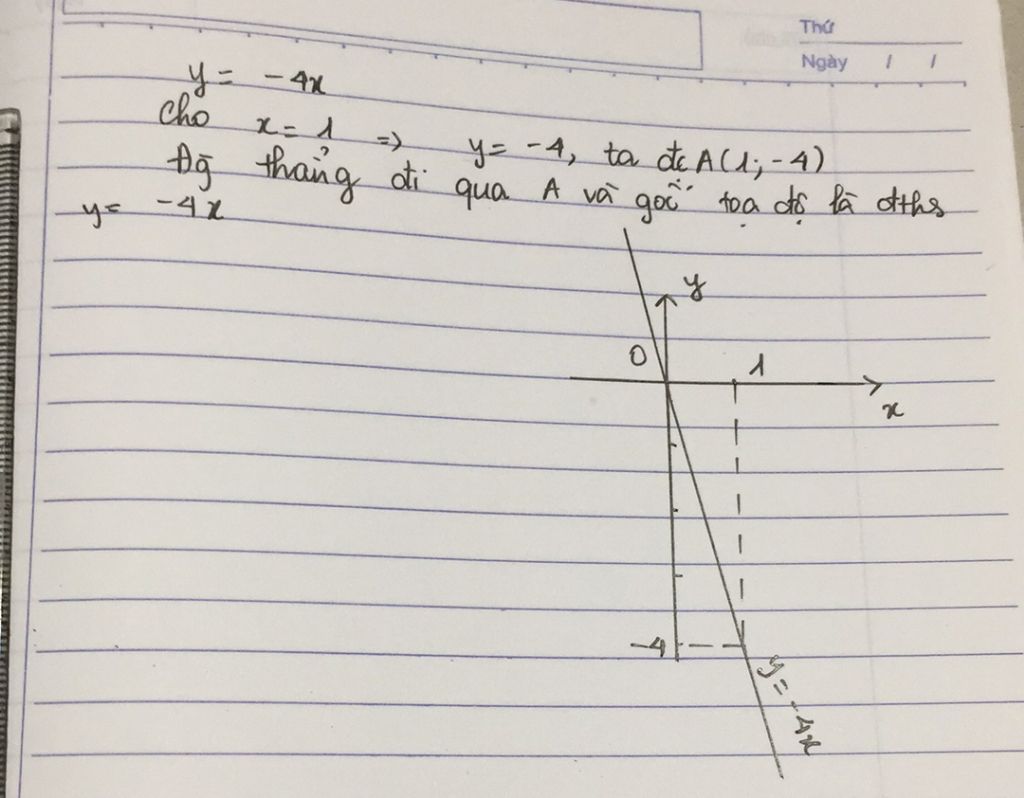 Thứ
Ngày / /
y = -4x
Cho x = 1 => y = -4, ta đc A(1; -4)
Đg thẳng đi qua A và gốc toạ độ là đths
y = -4x
y
O
1
x
-4
y = -4x